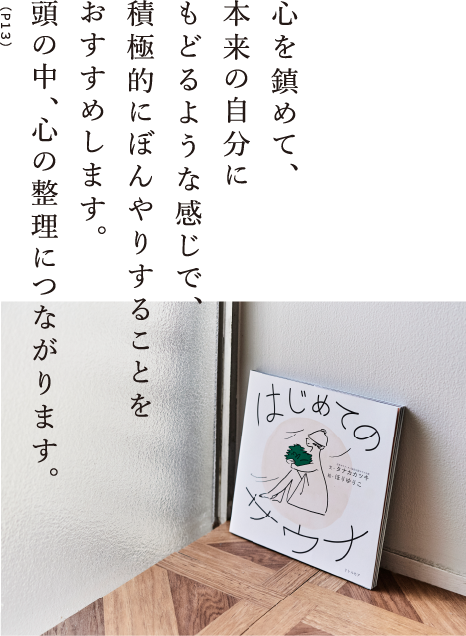 心を鎮めて、
本来の自分に
もどるような感じで、
積極的にぼんやりすることを
おすすめします。
頭の中、心の整理につながります。
(P13)
はじめての
文・タナカカツキ
絵・ほりゆりこ
サウナ